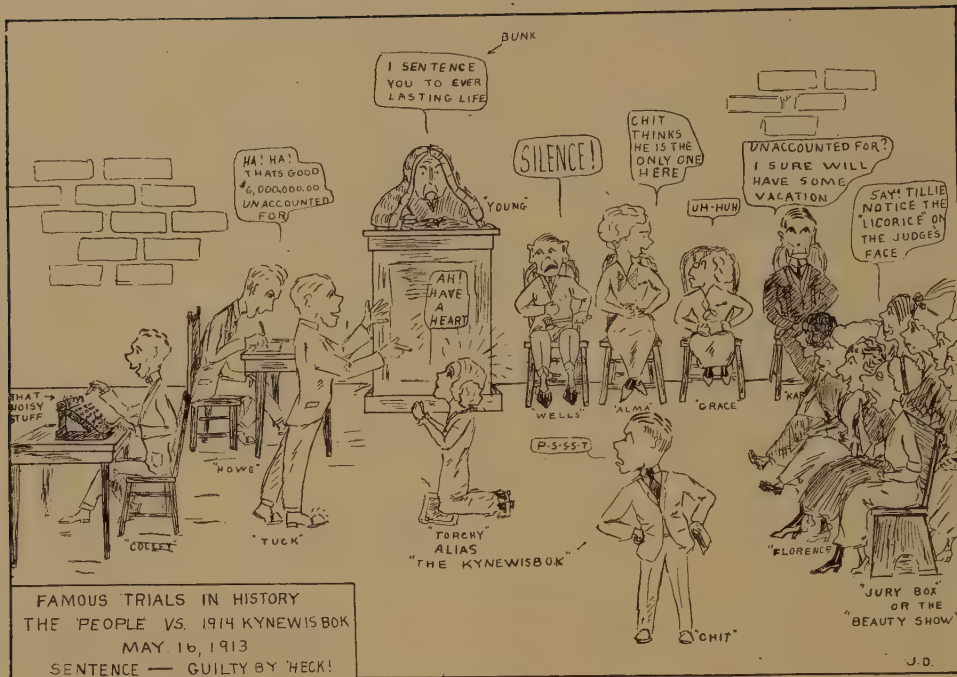 BUNK
I SENTENCE
YOU TO EVER
LASTING LIFE
HA! HA!
THATS GOOD
$6,000,000.00
UNACCOUNTED
FOR
"YOUNG"
SILENCE!
CHIT
THINKS
HE IS THE
ONLY ONE
HERE
UH-HUH
UNACCOUNTED FOR?
I SURE WILL
HAVE SOME
VACATION
SAY! TILLIE
NOTICE THE
"LICORICE" ON
THE JUDGE'S
FACE.
AH!
HAVE
A
HEART
THAT
NOISY
STUFF
"WELLS"
"ALMA"
"GRACE"
"KAP
P-S-S-S-T
"HOWE"
"COLLET"
"TUCK"
"TORCHY"
ALIAS
"THE KYNEWISBOK"
"CHIT"
"FLORENCE"
"JURY BOX"
OR THE
"BEAUTY SHOW"
FAMOUS TRIALS IN HISTORY
THE 'PEOPLE' VS. 1914 KYNEWISBOK
MAY. 16, 1913
SENTENCE — GUILTY BY 'HECK!
J.D.